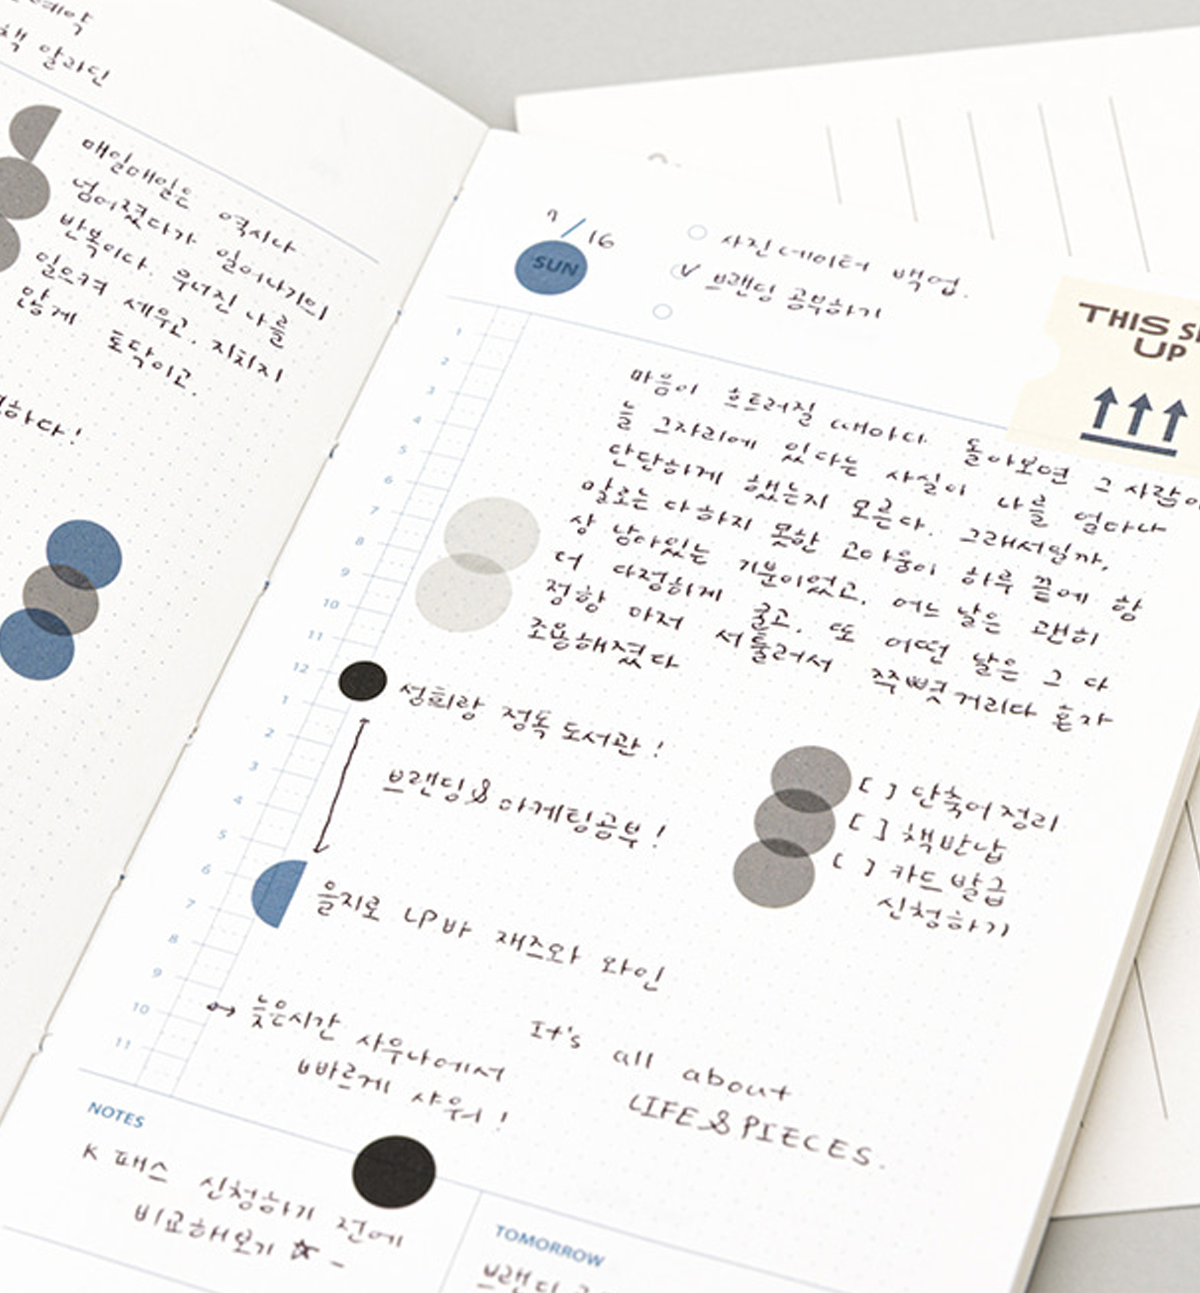 예약
책 알라딘
매일매일은 역시나
넘어졌다가 일어나기의
반복이다. 무너진 나를
일으켜 세우고, 지치지
않게 토닥이고.
하다!
7/16
SUN
사진 데이터 백업.
브랜딩 공부하기
THIS SI
UP
1
2
3
4
5
6
7
8
9
10
11
12
1
2
3
4
5
6
7
8
9
10
11
마음이 흐트러질 때마다 돌아보면 그 사람이
늘 그자리에 있다는 사실이 나를 얼마나
단단하게 했는지 모른다. 그래서일까,
말로는 다 하지 못한 고마움이 하루 끝에 항
상 남아있는 기분이었고, 어느 날은 괜히
더 다정하게 굴고, 또 어떤 날은 그 다
정함 마저 서툴러서 쭈뼛거리다 혼자
조용해졌다
성희랑 정독 도서관!
브랜딩&마케팅공부!
[ ] 단축어 정리
[ ] 책 반납
[ ] 카드 발급
신청하기
을지로 LP 바 재즈와 와인
늦은시간 사우나에서
빠르게 샤워!
It's all about
LIFE & PIECES.
NOTES
K 패스 신청하기 전에
비교해보기
TOMORROW
브랜딩